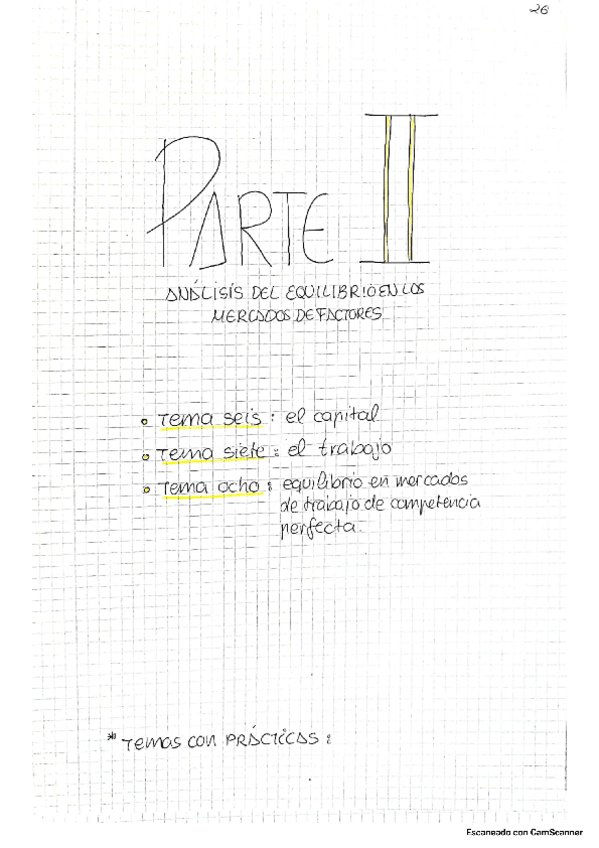 26
PARTE II
ANÁLISIS DEL EQUILIBRIO EN LOS
MERCADOS DE FACTORES
Tema seis : el capital
Tema siete : el trabajo
Tema ocho : equilibrio en mercados
de trabajo de competencia
perfecta.
* Temas con PRÁCTICAS :
Escaneado con CamScanner